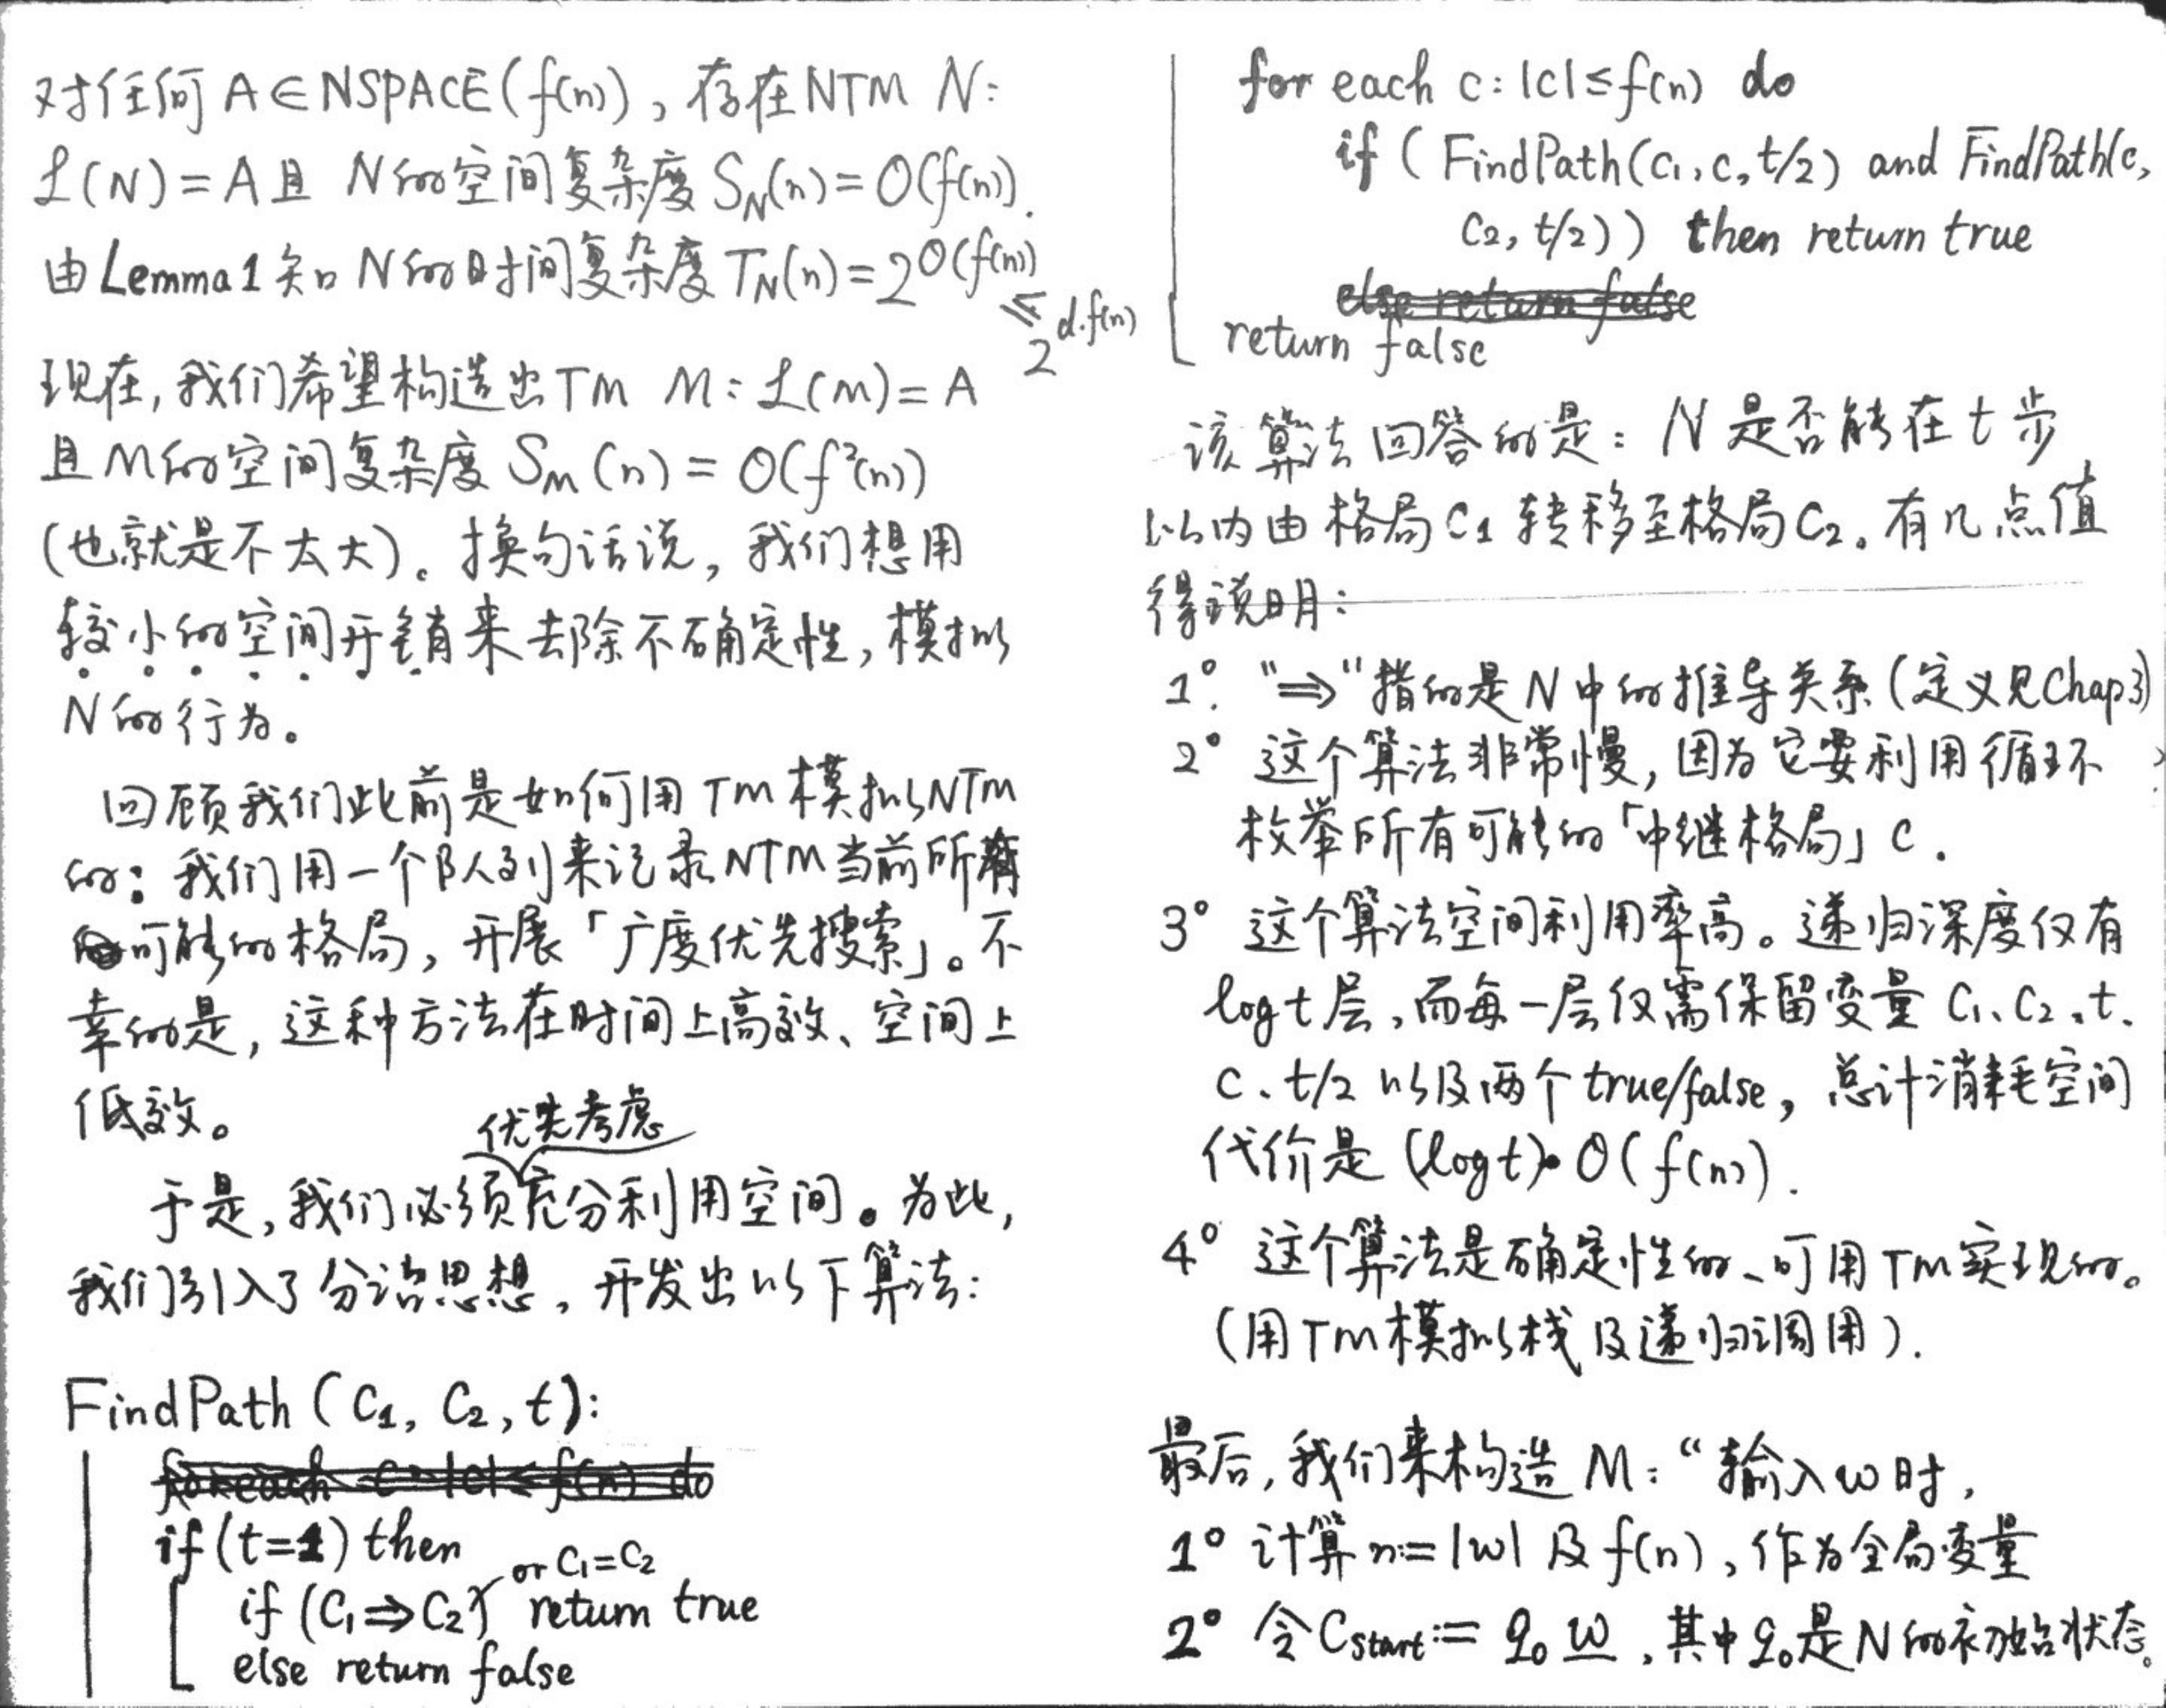 对任何 A∈NSPACE(f(n)), 存在NTM N:
L(N)=A且 N的空间复杂度 S_N(n)=O(f(n)).
由Lemma1知 N的时间复杂度 T_N(n)=2^O(f(n))
≤ 2^d·f(n)
现在, 我们希望构造出TM M: L(M)=A
且M的空间复杂度 S_M(n)=O(f²(n))
(也就是不太大)。换句话说, 我们想用
较小的空间开销来去除不确定性, 模拟
N的行为。
回顾我们此前是如何用TM模拟NTM
的: 我们用一个队列来记录NTM当前所有
可能的格局, 开展「广度优先搜索」。不
幸的是, 这种方法在时间上高效、空间上
低效。
优先考虑
于是, 我们必须充分利用空间。为此,
我们引入了分治思想, 开发出以下算法:
FindPath(C₁, C₂, t):
for each c: |c|≤f(n) do
if (t=1) then
or C₁=C₂
if (C₁⇒C₂) return true
else return false
for each c: |c|≤f(n) do
if (FindPath(C₁, c, t/2) and FindPath(c,
C₂, t/2)) then return true
else return false
return false
该算法回答的是: N是否能在t步
以内由格局C₁转移至格局C₂。有几点值
得说明:
1°. "⇒"指的是N中的推导关系(定义见Chap3)
2° 这个算法非常慢, 因为它要利用循环
枚举所有可能的「中继格局」C.
3° 这个算法空间利用率高。递归深度仅有
log t层, 而每一层仅需保留变量 C₁、C₂、t、
C、t/2 以及两个true/false, 总计消耗空间
代价是 (log t)·O(f(n)).
4° 这个算法是确定性的、可用TM实现的。
(用TM模拟栈及递归调用).
最后, 我们来构造 M: “输入w时,
1° 计算n:=|w| 及 f(n), 作为全局变量
2° 令C_start:= q₀ w, 其中q₀是N的初始状态。